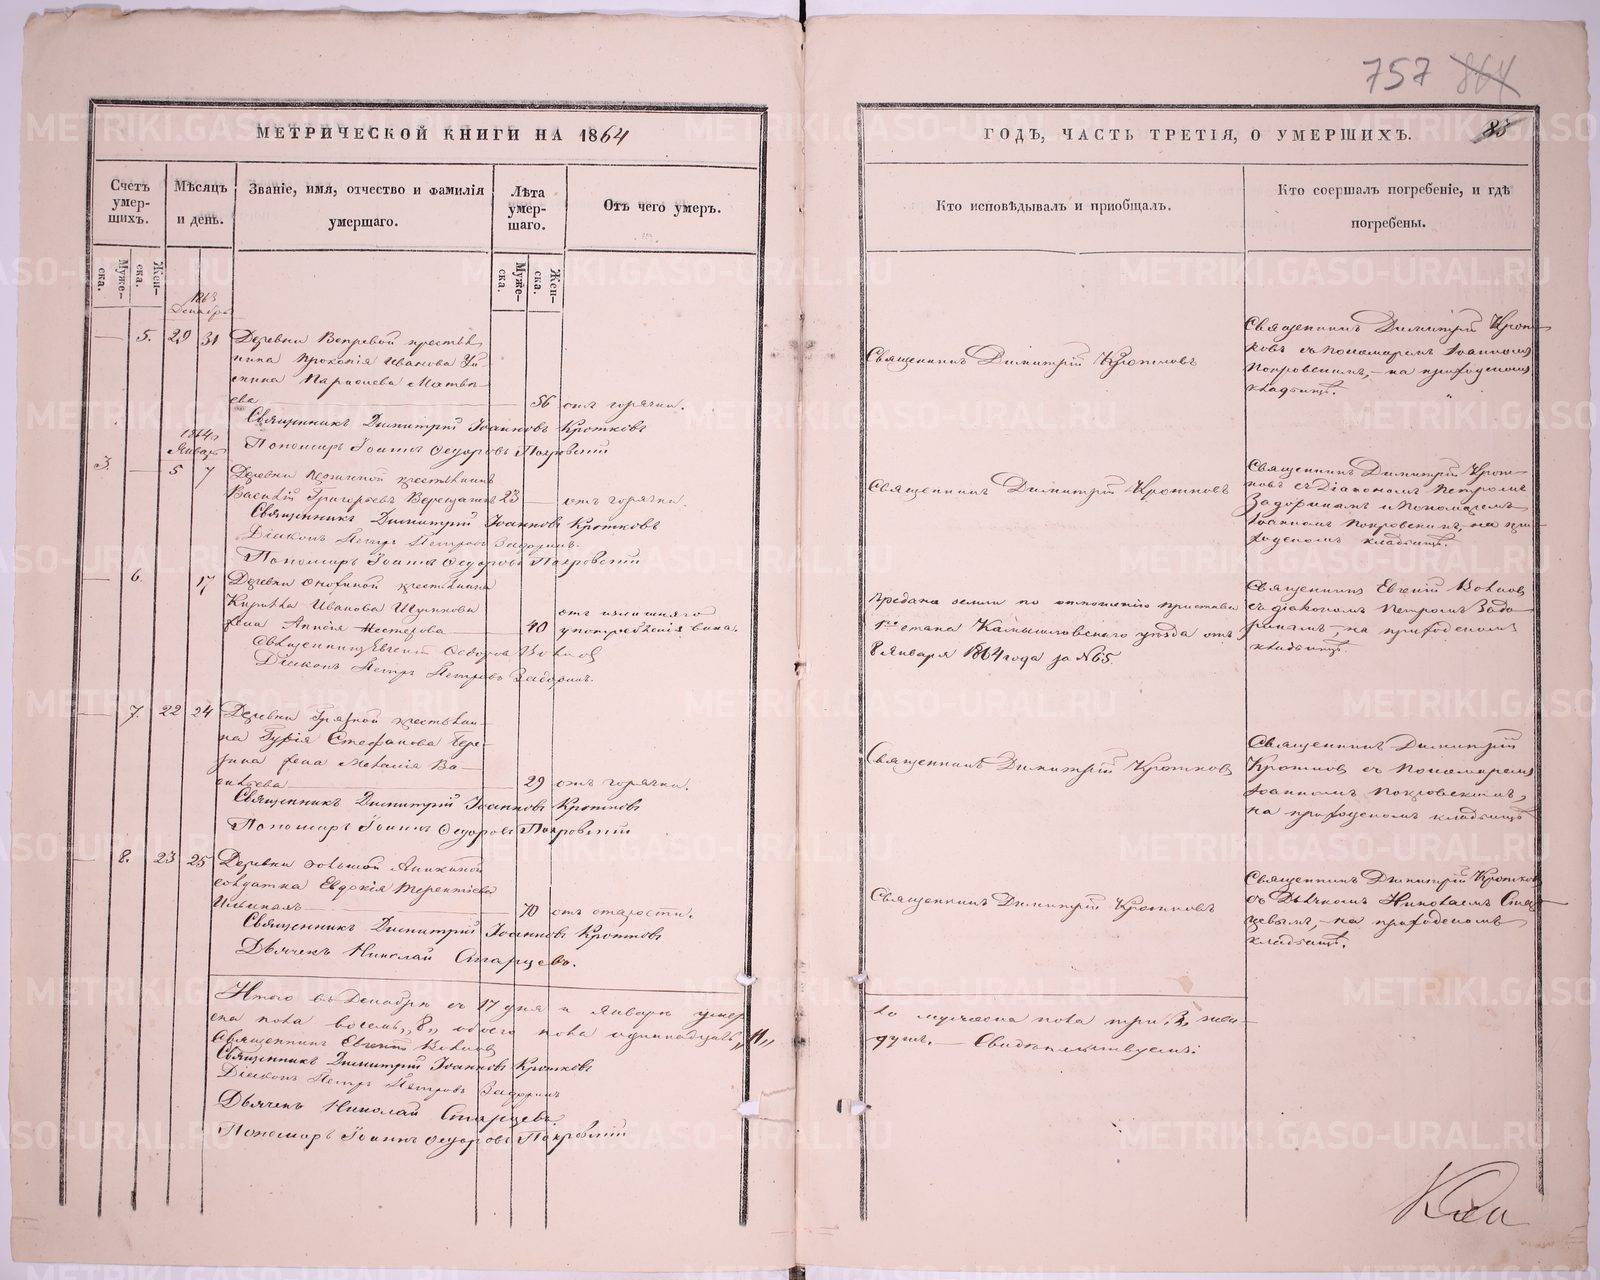 757 864
МЕТРИЧЕСКОЙ КНИГИ НА 1864
ГОДЪ, ЧАСТЬ ТРЕТІЯ, О УМЕРШИХЪ.
85
Счетъ умер-шихъ.
Мѣсяцъ и день.
Званіе, имя, отчество и фамилія
умершаго.
Лѣта умер-шаго.
Отъ чего умеръ.
Кто исповѣдывалъ и пріобщалъ.
Кто соершалъ погребеніе, и гдѣ
погребены.
Муже-ска.
Жен-ска.
Муже-ска.
Жен-ска.
1863
Декабрь
5. 29 31 Деревни Вепревой крестья
нина Прокопія Иванова
жена Параскева Матвѣ
ева 56 отъ горячки.
Священникъ Димитрій Кротковъ
Священникъ Димитрій Крот
ковъ съ пономаремъ Іоанномъ
Покровскимъ, на приходскомъ
кладбищѣ.
Священникъ Димитрій Іоанновъ Кротковъ
Пономарь Іоаннъ Ѳедоровъ Покровскій
1864 г.
Январь
3. 5 7 Деревни крестьянинъ
Василій Григорьевъ Верещагинъ 23 отъ горячки.
Священникъ Димитрій Кротковъ
Священникъ Димитрій Крот
ковъ съ Діакономъ Петромъ
Задоринымъ и Пономаремъ
Іоанномъ Покровскимъ, на при
ходскомъ кладбищѣ.
Священникъ Димитрій Іоанновъ Кротковъ
Діаконъ Петръ Петровъ Задоринъ.
Пономарь Іоаннъ Ѳедоровъ Покровскій
6. 17 Деревни крестьянина
Кирилла Иванова
жена Анисія Нестерова 40 отъ излишняго
употребленія вина.
Предана земли по отношенію пристава
1го стана Камышловскаго уѣзда отъ
8 Января 1864 года за №65.
Священникъ Евгеній
съ діакономъ Петромъ Задо
ринымъ, на приходскомъ
кладбищѣ.
Священникъ Евгеній Ѳедоровъ
Діаконъ Петръ Петровъ Задоринъ.
7. 22 24 Деревни Грязной крестьяни
на Гурія Стефанова
жена Меланія Ва
сильева 29 отъ горячки.
Священникъ Димитрій Кротковъ
Священникъ Димитрій
Кротковъ съ Пономаремъ
Іоанномъ Покровскимъ,
на приходскомъ кладбищѣ
Священникъ Димитрій Іоанновъ Кротковъ
Пономарь Іоаннъ Ѳедоровъ Покровскій
8. 23 25 Деревни Большой Аникиной
солдатка Евдокія Терентіева
70 отъ старости.
Священникъ Димитрій Кротковъ
Священникъ Димитрій Кротковъ
съ Дьячкомъ Николаемъ Стар
цевымъ, на приходскомъ
кладбищѣ.
Священникъ Димитрій Іоанновъ Кротковъ
Дьячекъ Николай Старцевъ.
Итого въ Декабрѣ съ 17 дня и Январѣ умер
ло мужеска пола три, 3, жен
ска пола восемь, 8, обоего пола одинадцать, 11,
душъ. Свидѣтельствуемъ:
Священникъ Евгеній
Священникъ Димитрій Іоанновъ Кротковъ
Діаконъ Петръ Петровъ Задоринъ
Дьячекъ Николай Старцевъ.
Пономарь Іоаннъ Ѳедоровъ Покровскій
METRIKI.GASO-URAL.RU